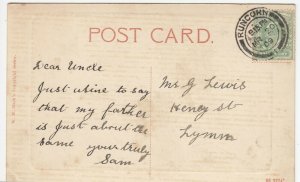 POST CARD.
RUNCORN
Dear Uncle
Just writing to say
that my father
is Just about the
Same your truly
Sam
Mr G Lewis
Henry St
Lymm